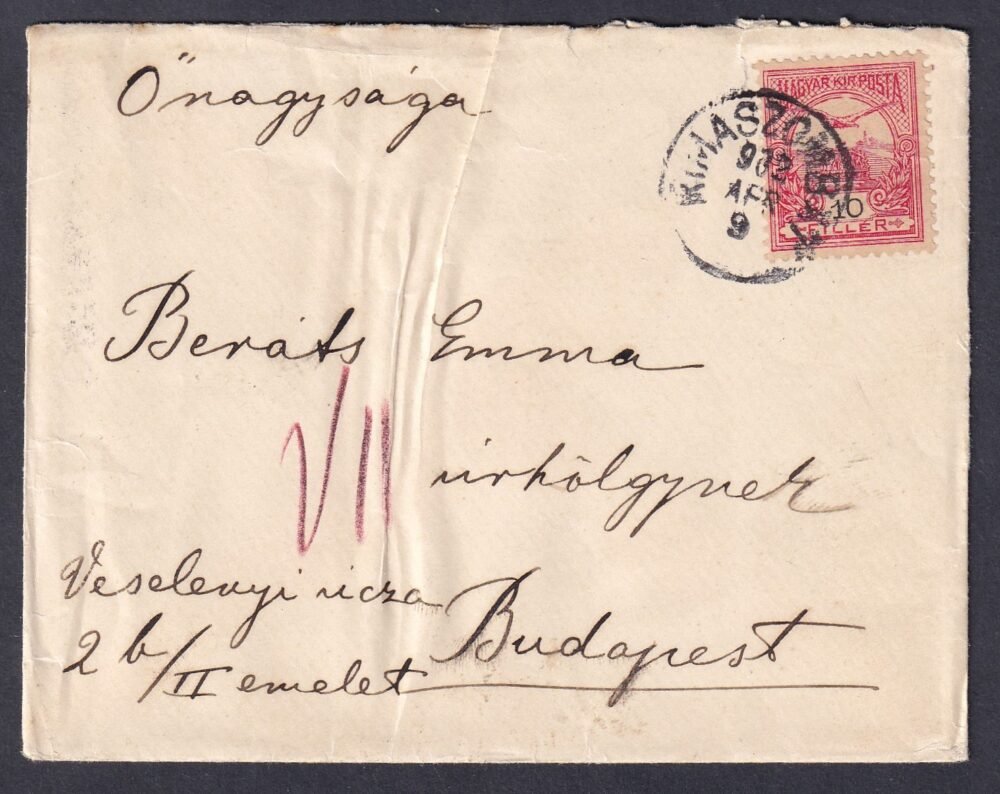 Őnagysága
MAGYAR KIR. POSTA
10
FILLER
RIMASZOMBAT
902
APR
9
Beráts Emma
VII
úrhölgynek
Veselenyi ucza
2 b/II emelet
Budapest